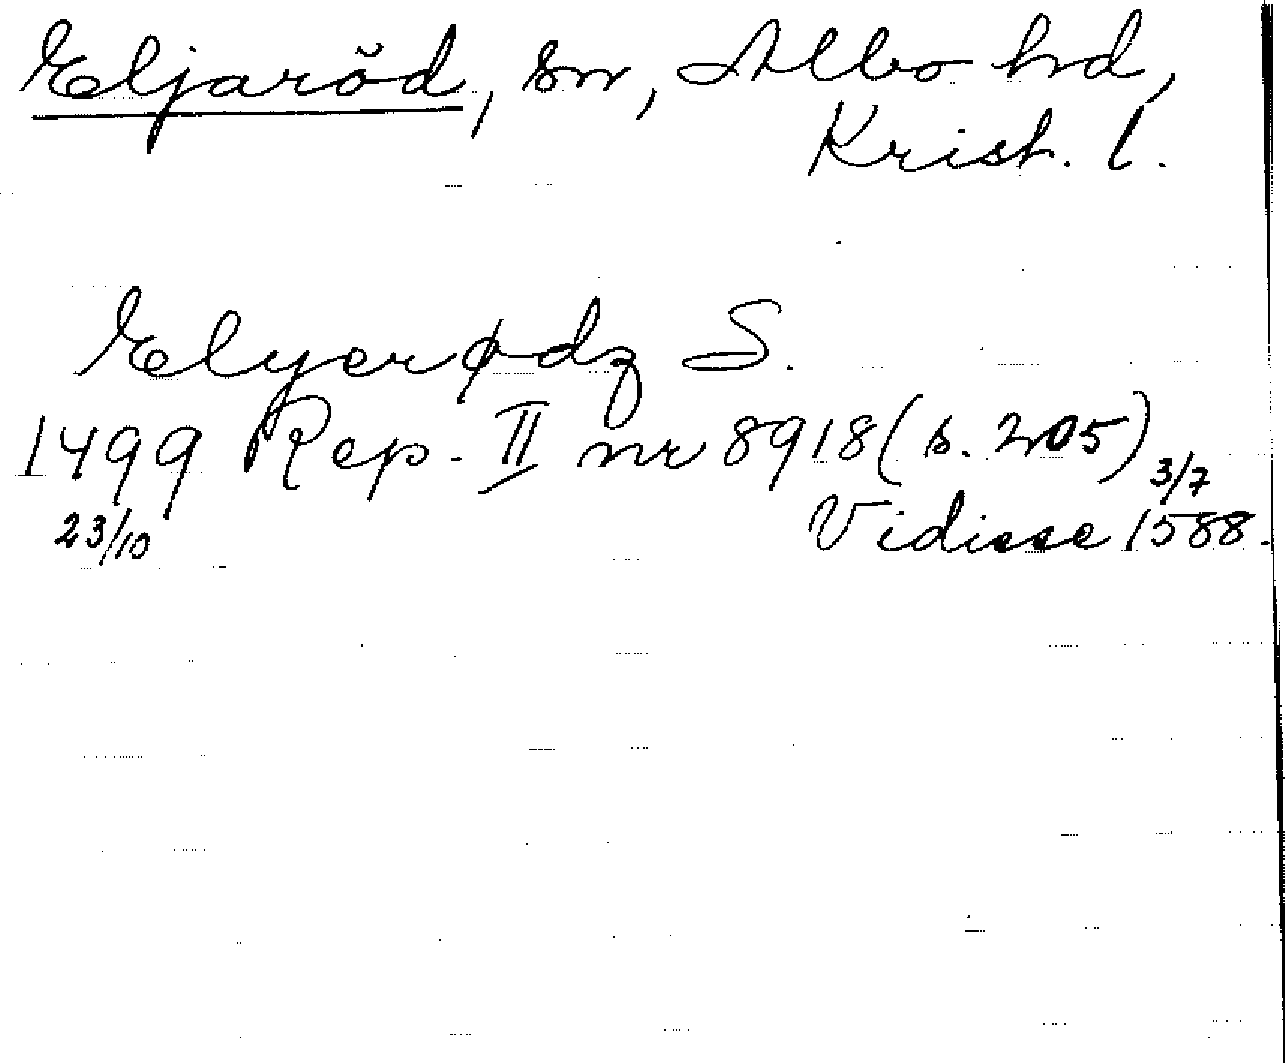 Eljaröd, sn, Albo hd,
Krist. l.
Elyerødz S.
1499 Rep. II nr 8918 (s. 205)
23/10 Vidisse 3/7 1588.